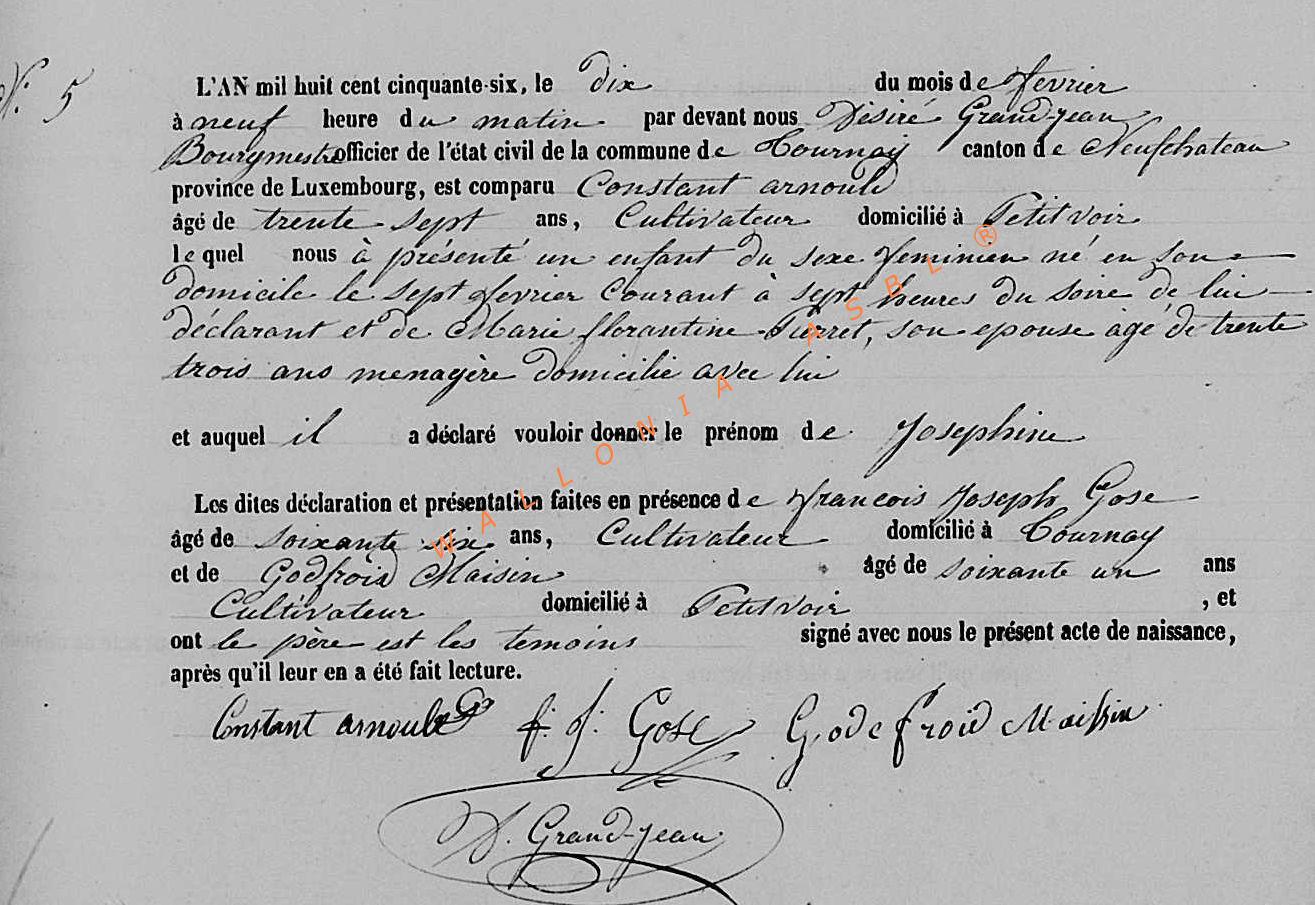 N°. 5
L'AN mil huit cent cinquante-six, le dix du mois de fevrier
à neuf heure du matin par devant nous Désiré Grand-jean
Bourgmestre officier de l'état civil de la commune de Tournay canton de Neufchateau
province de Luxembourg, est comparu Constant arnould
âgé de trente sept ans, Cultivateur domicilié à Petitvoir
le quel nous à présenté un enfant du sexe feminien né en son
domicile le sept fevrier Courant à sept heures du soire de lui
déclarant et de Marie florantine Pierret, son epouse âgé de trente
trois ans menagère domicilie avec lui
et auquel il a déclaré vouloir donner le prénom de Josephine
Les dites déclaration et présentation faites en présence de francois Joseph Gose
âgé de soixante six ans, Cultivateur domicilié à Tournay
et de Godfroid Maisin âgé de soixante un ans
Cultivateur domicilié à Petitvoir , et
ont le père est les temoins signé avec nous le présent acte de naissance,
après qu'il leur en a été fait lecture.
Constant arnould f. J. Gose Godefroid Maissin
D. Grand-jean
WALLONIA ASBL ®